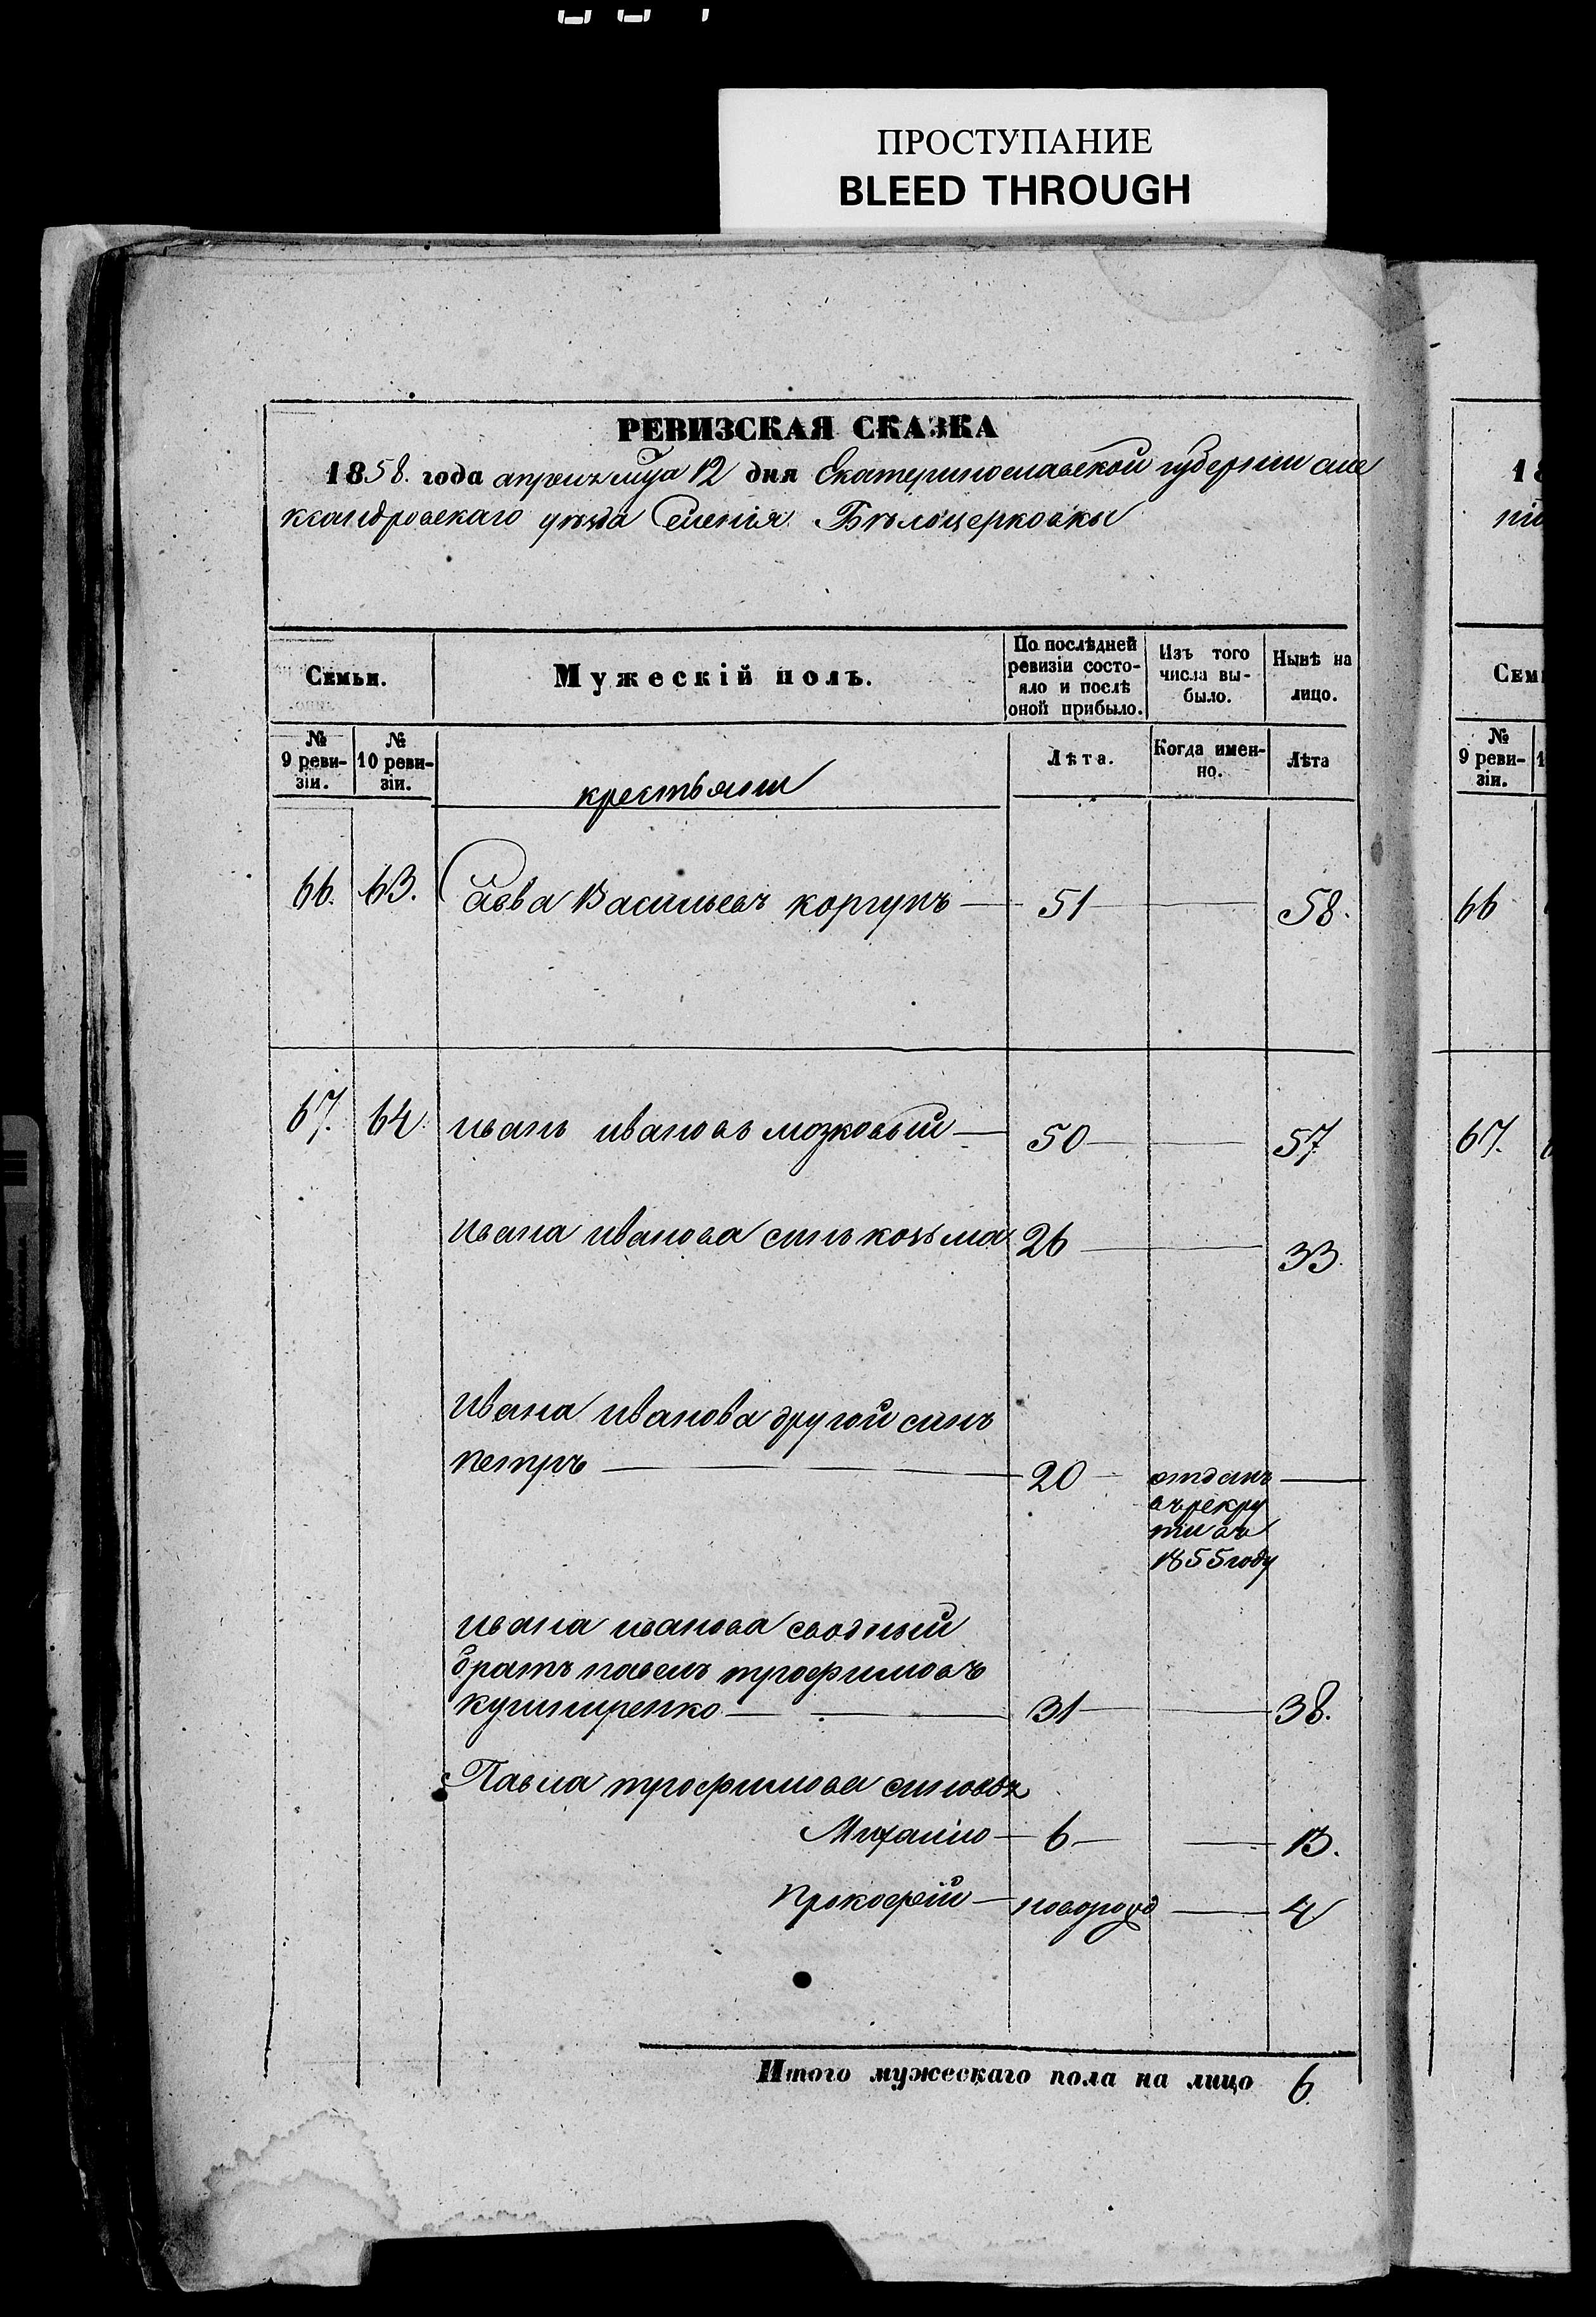 ПРОСТУПАНИЕ
BLEED THROUGH
РЕВИЗСКАЯ СКАЗКА
1858. года апреля мца 12 дня Екатеринославской губернии але
ксандровскаго уезда Селенія Бѣлоцерковки
Семьи.
Мужескій полъ.
По послѣдней
ревизіи состо-
яло и послѣ
оной прибыло.
Изъ того
числа вы-
было.
Нынѣ на
лицо.
№
9 реви-
зіи.
№
10 реви-
зіи.
крестьяни
Лѣта.
Когда имен-
но.
Лѣта
66. 63. Савва Васильевъ коргунъ 51 58.
67. 64 иванъ ивановъ мозковый 50 57
ивана иванова синъ козьма 26 33.
ивана иванова другой синъ
петръ 20 отданъ
въ рекру
ти въ
1855 году
ивана иванова сводный
братъ павелъ трофимовъ
кушниренко 31 38.
Павла трофимова синовья
Михайло 6 13.
Прокофій новорожд 4
Итого мужескаго пола на лицо 6.
18
Сем
№
9 реви-
зіи.
66
67.